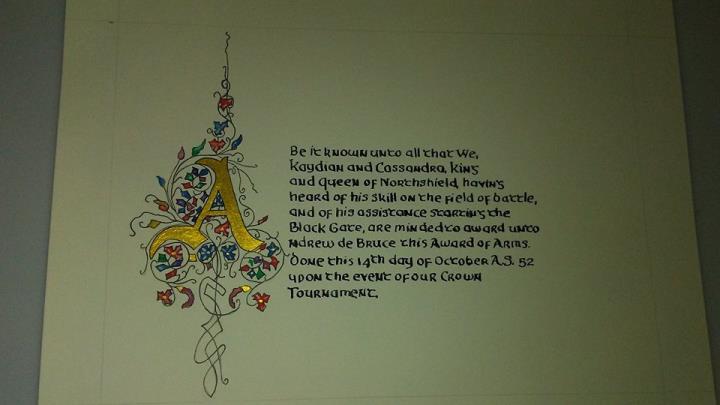 A
Be it known unto all that We,
Kaydian and Cassandra, King
and Queen of Northshield, having
heard of his skill on the field of battle,
and of his assistance starting the
Black Gate, are minded to award unto
ndrew de Bruce this Award of Arms.
Done this 14th day of October A.S. 52
upon the event of our Crown
Tournament.